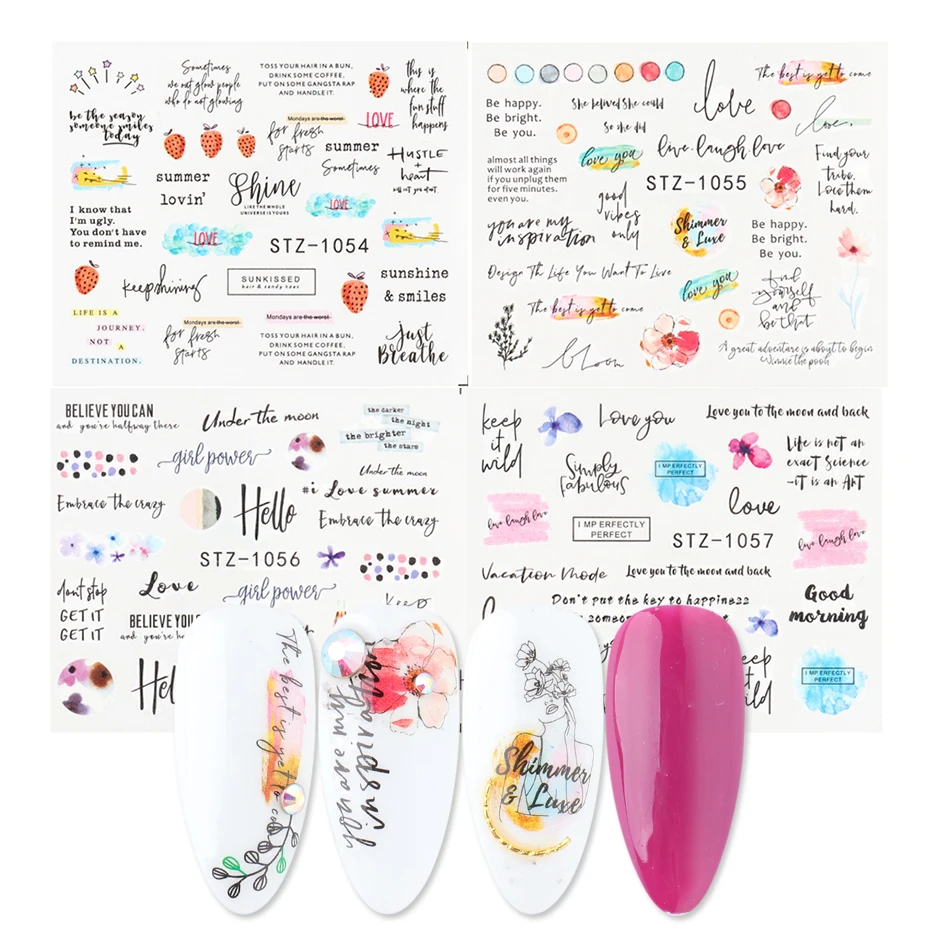 Sometimes
we out glow people
who do not glowing
TOSS YOUR HAIR IN A BUN,
DRINK SOME COFFEE,
PUT ON SOME GANGSTA RAP
AND HANDLE IT.
this is
where the
fun stuff
happens
be the reason
someone smiles
today
Mondays are the worst
for fresh
starts
LOVE
summer
Sometimes
HUSTLE
+
heart
will set you apart.
summer
lovin'
Shine
LIKE THE WHOLE
UNIVERSE IS YOURS
LOVE
I know that
I'm ugly.
You don't have
to remind me.
LOVE
STZ-1054
keep shining
SUNKISSED
hair & sandy toes
sunshine
& smiles
LIFE IS A
JOURNEY.
NOT A
DESTINATION.
Mondays are the worst
for fresh
starts
Mondays are the worst
TOSS YOUR HAIR IN A BUN,
DRINK SOME COFFEE,
PUT ON SOME GANGSTA RAP
AND HANDLE IT.
Just
Breathe
The best is yet to come
Be happy.
Be bright.
Be you.
She believed she could
So she did
love
love.
almost all things
will work again
if you unplug them
for five minutes.
even you.
love you
live-laugh-love
STZ-1055
Find your
tribe.
Love them
hard.
you are my
inspiration
good
vibes
only
Shimmer
& Luxe
Be happy.
Be bright.
Be you.
Design Th Life You Want To Live
love you
find
yourself
and
be that
The best is yet to come
bloom
A great adventure is about to begin
Winnie the pooh
BELIEVE YOU CAN
and you're halfway there
Under the moon
the darker
the night
the brighter
the stars
girl power
Under the moon
Embrace the crazy
Hello
#i Love summer
Embrace the crazy
STZ-1056
don't stop
GET IT
GET IT
Love
girl power
BELIEVE YOU
and you're ha
Keep
Hel
keep
it
wild
Love you
Love you to the moon and back
Simply
Fabulous
IMPERFECTLY
PERFECT
Life is not an
exact Science
-it is an Art
love laugh love
IMPERFECTLY
PERFECT
love
love laugh love
STZ-1057
Vacation Mode
Love you to the moon and back
Good
morning
Don't put the key to happiness
someone
eep
ld
IMPERFECTLY
PERFECT
The best is yet to co
you are my
inspiration
Shimmer
& Luxe